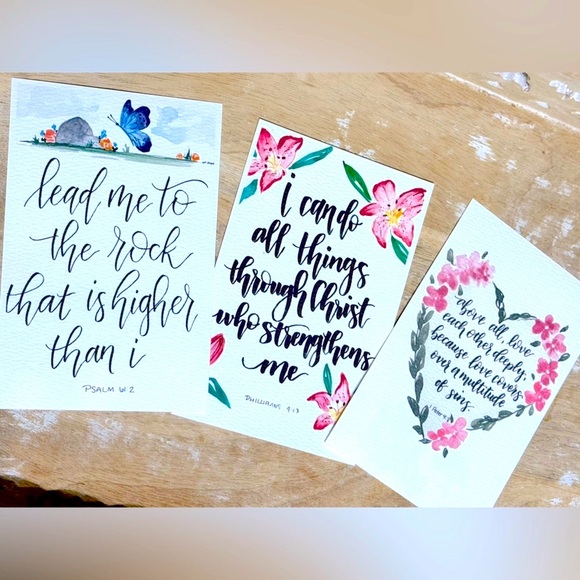 lead me to
the rock
that is higher
than i
PSALM 61:2
i can do
all things
through Christ
who strengthens
me
PHILLIPIANS 4:13
above all, love
each other deeply,
because love covers
over a multitude
of sins.